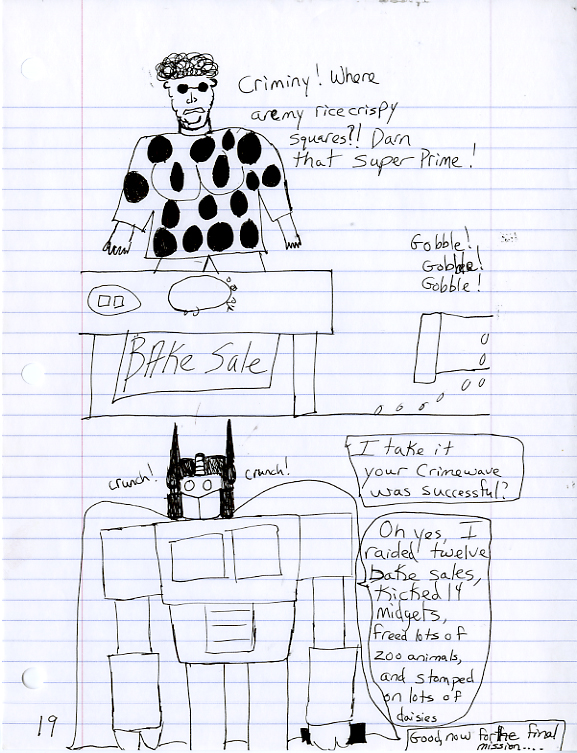 Criminy! Where
are my rice crispy
squares?! Darn
that Super Prime!
Gobble!
Gobble!
Gobble!
BAke Sale
crunch!
crunch!
I take it
your Crimewave
was successful?
Oh yes, I
raided twelve
bake sales,
Kicked 14
midgets,
freed lots of
zoo animals,
and stomped
on lots of
daisies
Good, now for the final
mission....
19